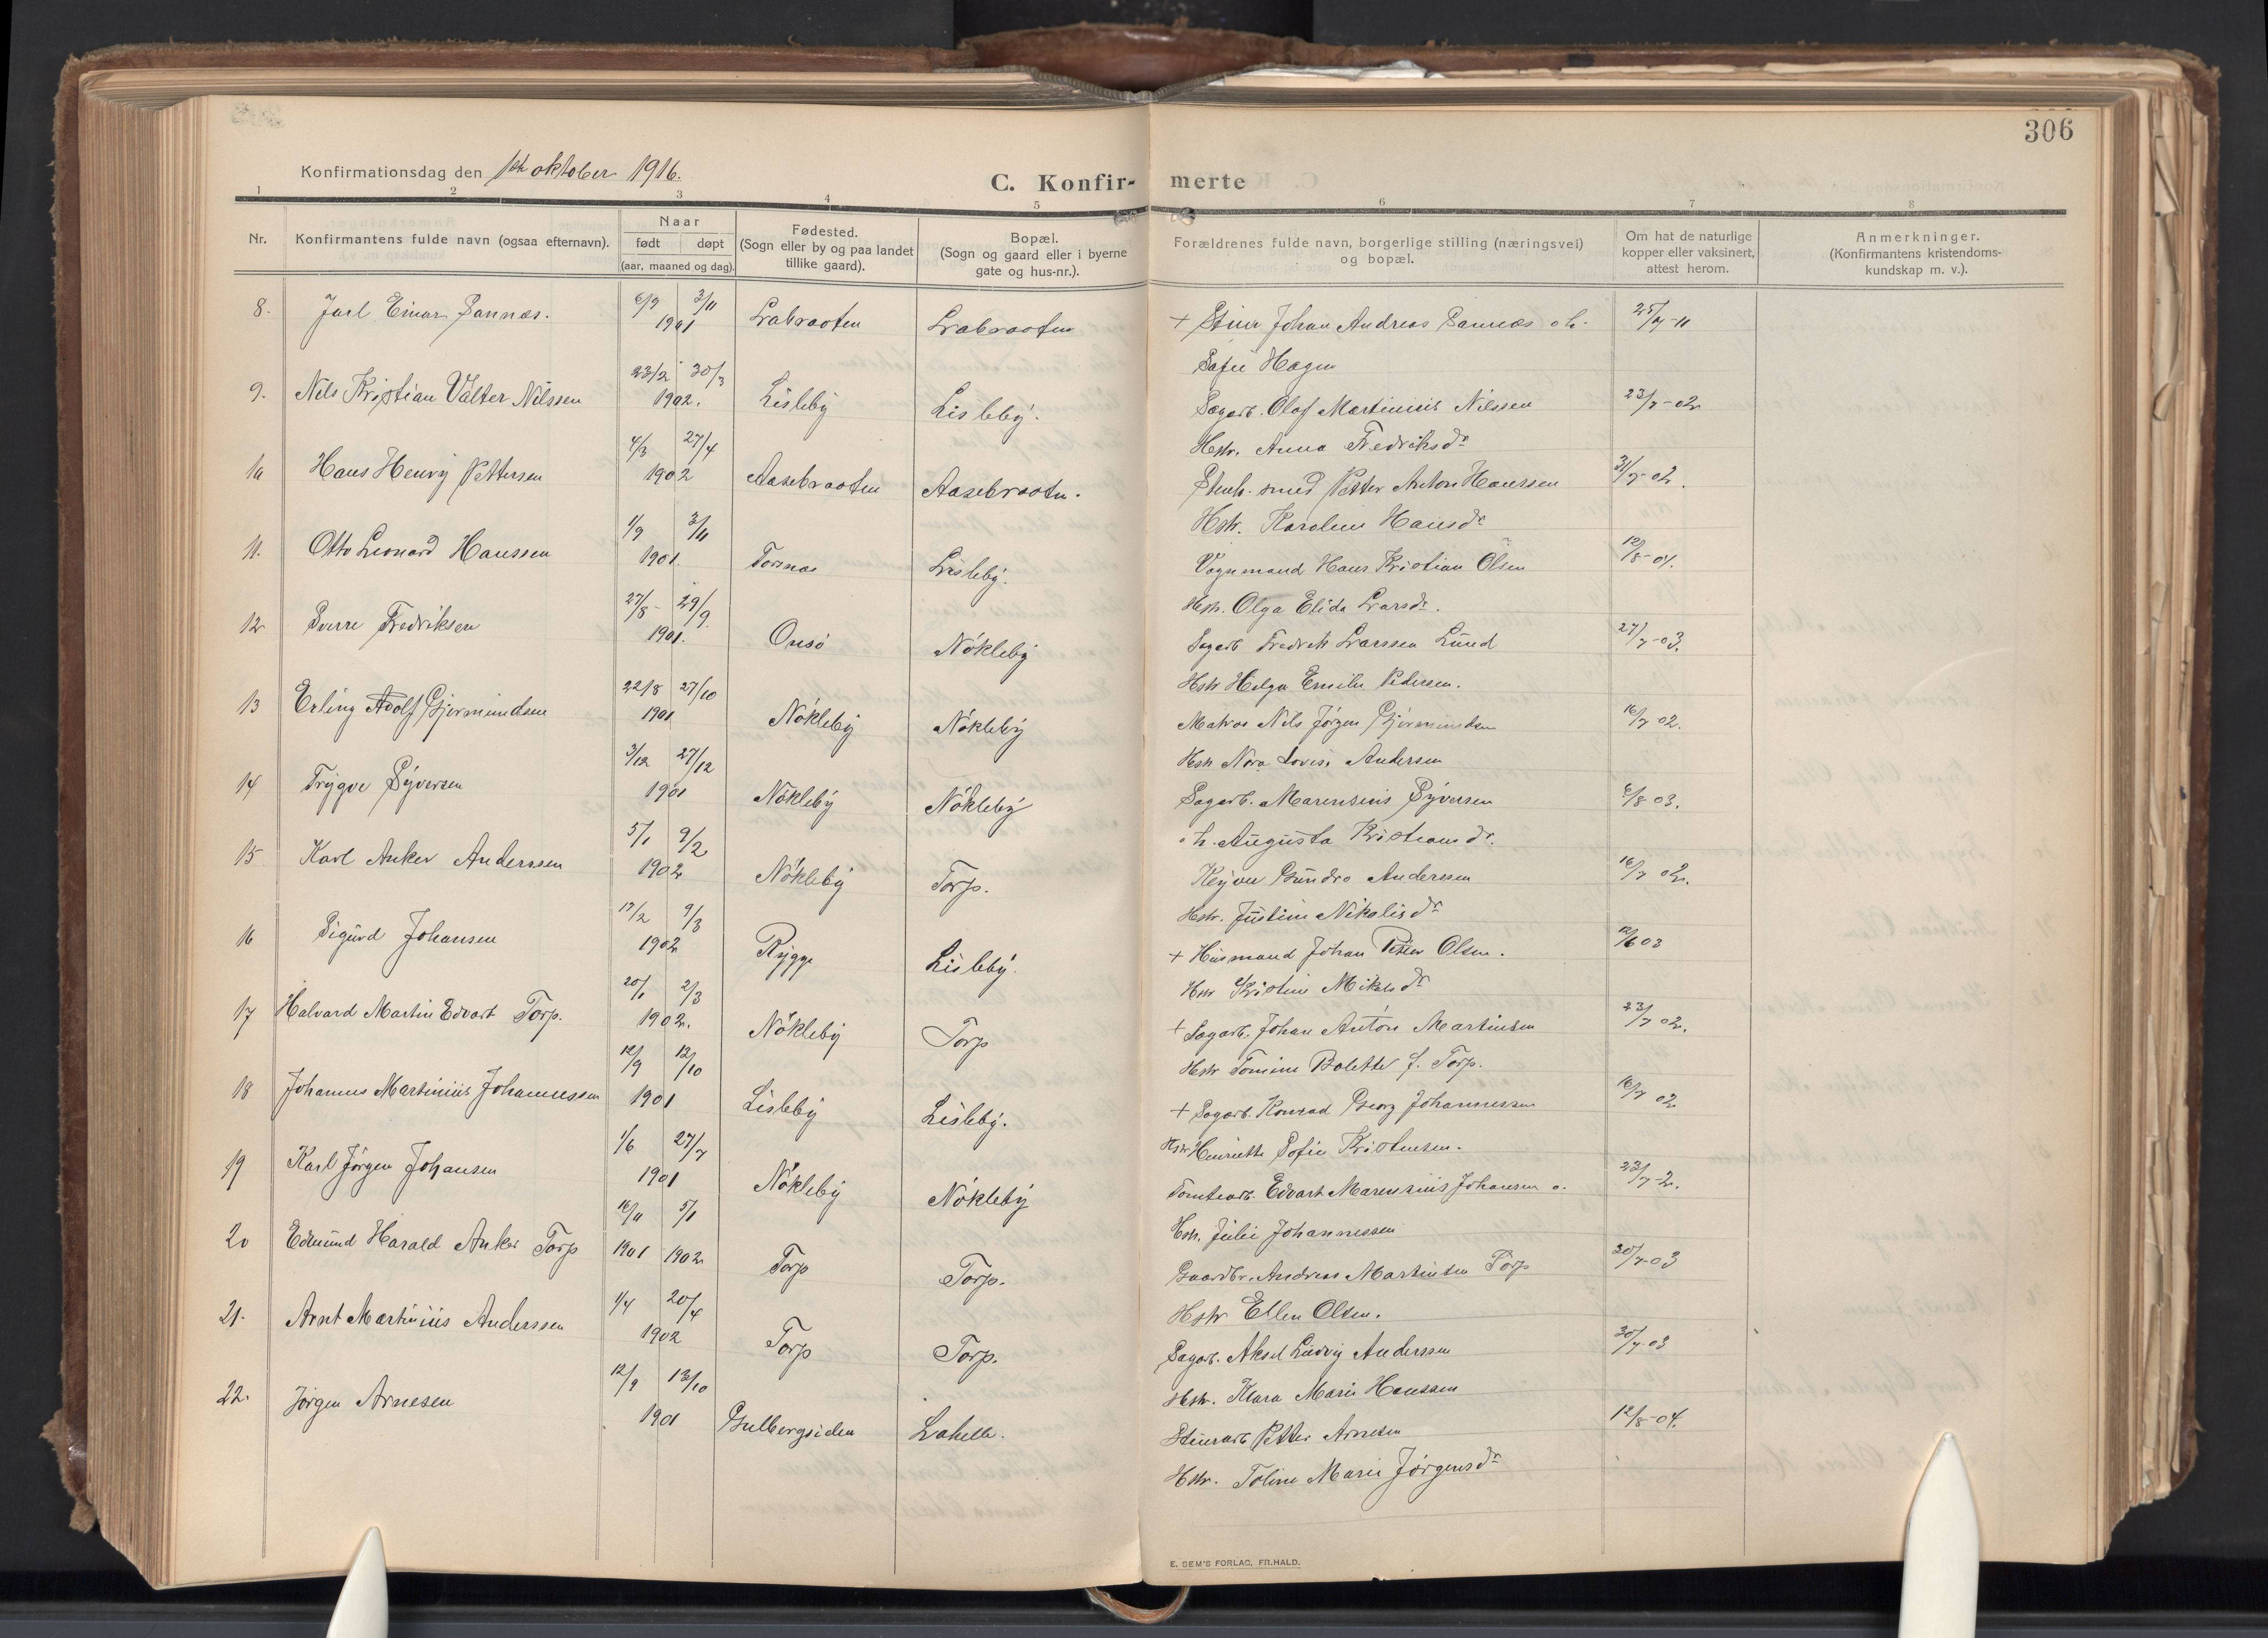 306
Konfirmationsdag den 1ste oktober 1916.
C. Konfir- merte
1 2 3 4 5 6 7 8
Nr. Konfirmantens fulde navn (ogsaa efternavn). Naar født døpt (aar, maaned og dag). Fødested. (Sogn eller by og paa landet tillike gaard). Bopæl. (Sogn og gaard eller i byerne gate og hus-nr.). Forældrenes fulde navn, borgerlige stilling (næringsvei) og bopæl. Om hat de naturlige kopper eller vaksinert, attest herom. Anmerkninger. (Konfirmantens kristendoms-kundskap m. v.).
8. Jarl Einar Sannæs. 6/9 3/11 1901 Labraaten Labraaten + Johan Andreas Sannæs o. h. 25/7-11
Sofie Hagen
9. Nils Kristian Valter Nilssen 23/2 30/3 1902. Lisleby Lisleby. Sagarb. Olaf Martinius Nilssen 23/7-02
Hstr. Anna Fredriksdr
10 Hans Henry Pettersen 4/3 27/4 1902 Aasebraaten Aasebraatn. Stenh. smed Petter Anton Hanssen 31/7-02.
Hstr. Karoline Hansdr
11. Otto Leonard Hanssen 1/9 3/11 1901. Torsnæs Lisleby. Vognmand Hans Kristian Olsen 12/8-01.
Hstr. Olga Elida Larsdr.
12 Sverre Fredriksen 27/8- 29/9. 1901. Onsö Nökleby Sagarb Fredrik Larssen Lund 27/7-03.
Hstr Helga Emilie Pedersen.
13 Erling Adolf Gjermundsen 22/8 27/10 1901 Nökleby Nökleby Matros Nils Jörgen Gjermundsen 16/7 02.
Hstr Nora Lovise Andersen
14 Trygve Syversen 3/12 27/12 1901 Nökleby Nökleby Sagarb. Marensius Syversen 6/8 03.
o h. Augusta Kristiansdr.
15 Karl Anker Anderssen 5/1 9/2 1902 Nökleby Torp. Gundro Anderssen 16/7 02.
Hstr. Justine Nikolaisdr
16 Sigurd Johansen 17/2 9/3 1902 Rygge Lisleby. + Husmand Johan Petter Olsen. 12/6 03
Hstr Kristine Mikelsdr
17 Halvard Martin Edvart Torp. 20/1 2/3 1902. Nökleby Torp + Sagarb. Johan Anton Martinsen 23/7 02.
Hstr Tomine Bolette f. Torp.
18 Johannes Martinius Johannessen 12/9 13/10 1901 Lisleby Lisleby. + Sagarb. Konrad Georg Johannessen 16/7 02
Hstr Henriette Sofie Kristensen.
19 Karl Jörgen Johansen 1/6 27/7 1901 Nökleby Nökleby Tomtearb. Edvart Marensius Johansen o. 23/7-2.
Hstr. Julie Johannessen
20 Edmund Harald Anker Torp 16/11 5/1 1901 1902 Torp Torp. Gaardbr. Andreas Martinsen Torp 30/7-03
Hstr Ellen Olsen.
21. Arnt Martinius Anderssen 1/4 20/4 1902 Torp Torp. Sagarb. Aksel Ludvig Anderssen 30/7-03
Hstr. Klara Marie Hanssen
22. Jörgen Arnesen 12/9 13/10 1901 Gulbergsiden Lahelle. Stenarb Petter Arnesen 12/8-04.
Hstr. Toline Marie Jörgensdr
E. SEM'S FORLAG, FR.HALD.